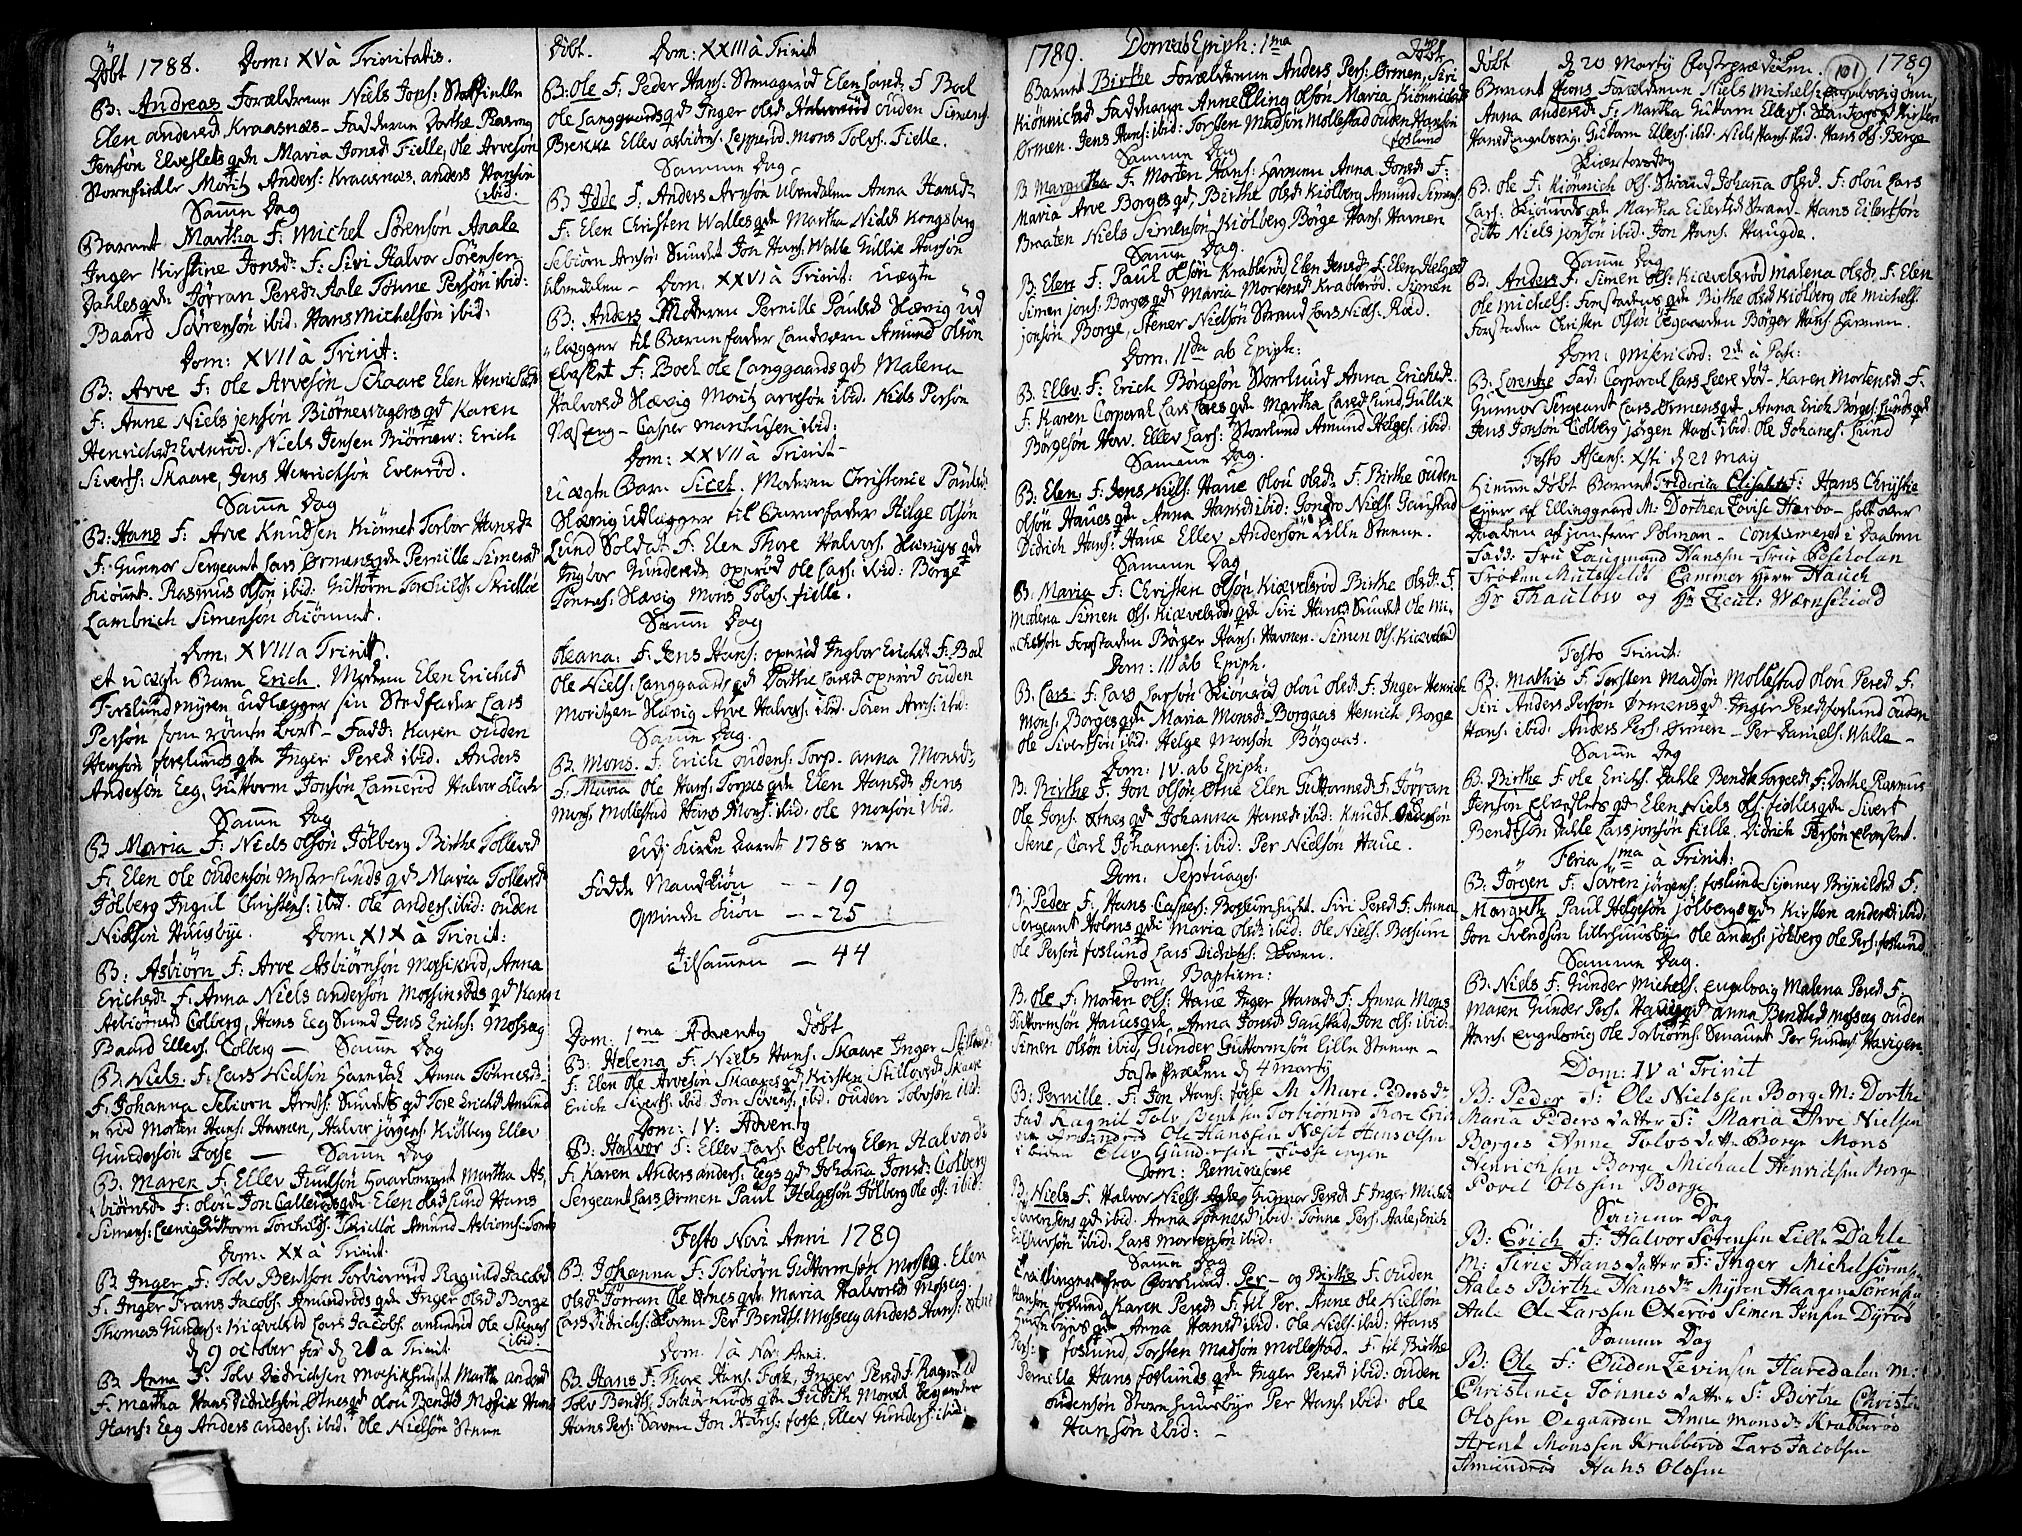 Döbt 1788. Dom: XV à Trinitatis.
B: Andreas Forældrene Niels Jons: Stoffielle
Elen andersd Kraasnæs - Fadderne Dorthe Rasmus
Jensøn Elveslets qde Maria Jonsd Fielle, ole Arvesøn
Stornfielle Moritz Anders: Kraasnæs, anders Hansøn
ibid:
Samme Dag
Barnet Martha F: Michel Sörensøn Aale
Inger Kirstine Jonsdr F: Siri Halvor Sörensen
Dahles qde Jørran Persdr Aale Tönne Persøn ibid:
Baard Sörensøn ibid: Hans Michelsøn ibid:
Dom: XVII à Trinit:
B: Arve F: ole Arvesøn Skaare Elen Henrichsdr
F: Anne Niels jensøn Biørnevagens qd Karen
Henrichsdr Evenrød. Niels Jensen Biørnev: Erich
Siverts: Skaare, Jens Henrichsøn Evenrød.
Samme Dag
B: Hans F: Arve Knudsen Kiönnet Torbor Hansdr
F: Gunnor Sergeant Lars Ørmens qde Pernille Simensd
Kiönnt. Rasmus olsøn ibid: Guttorm Torchilds: Skielløe
Lambrich Simensøn Kiønnet.
Dom: XVIII a Trinit.
et uægte Barn Erich. Moderen Elen Erichsd
Forslundmyren udlægger sin Stedfader Lars
Persøn som römte bort - Fadd: Karen ouden
Hansøn forslunds qde Inger Persd ibid. Anders
Andersen Eeg, Guttorm Jonsøn Lammerød Halvor
Samme Dag
B Maria F: Niels olsøn Jölberg Birthe Tollevsd
F: Elen Ole oudensøn qd Maria Tollevsd
Jölberg Ingul Christens: ibid. ole anders: ibid: ouden
Nielsøn Huusbye. Dom: XIX à Trinit:
B: Asbiörn F: Arve Asbiørnsøn Mosikrød, Anna
Erichsdr F: Anna Niels andersøn qd Karen
Asbiörnsd Colberg, Hans Eeg Sund Jens Erichs: Mosseg
Baard Ellevs. Colberg — Samme Dag
B: Niels: F: Lars Nielsen Haredal Anna Tönnesd
F: Johanna Sebiorn Arnts: Sundets qd Tore Erichsd Amund
rød Morten Hans: Havnen, Halvor jörgens: Kiölberg Ellev
Gundersøn Fosse — Samme Dag
B. Maren F: Ellev Juulsøn Martha As,
biörnsd F: olou Jon Callerøds qde Elen olsd Lund Hans
Simens: Guttorm Torchilds: Skielløe Amund Asbiørns:
Dom: XX à Trinit.
B Inger F: Tolv Bentsøn Torbiörnrød Ragnild Jacobsd
F. Inger Frans Jacobs: Amundrøds qde Inger olsd Borge
Thomas Gunders: Kiævelsrød Lars Jacobs: amundrød ole Steners
ibid:
d 9 october for d 21 a Trinit
B Anna F: Tolv Didrichsen Marthe andersd
F. Martha Hans Didrichsøn Øtnes qd olou Bendtsd Hans
Hans: Eeg Anders anders: ibid: ole Nielsøn Steene

Döbt. Dom: XXIII à Trinit
B: ole F: Peder Hans: Steensgrød Elen F Boel
Ole Langgaards qd Inger olsd ouden Simens:
Brekke Ellev asbiörns: Lepperød. Mons Tolvs. Fielle.
Samme Dag
B Idde F: Anders Arnsøn Ulvedalen Anna Hansdr
F: Elen Christen Walles qde Martha Nielsd Kongsberg
Sebiörn Arnsøn: Sundet Jon Hans: Walle Gullic Hansøn
Ulvedalen - Dom: XXVI à Trinit: uægte
B: Anders Moderen Pernille Paulsd Hævig ud
lægger til Barnefader Landværn Amund olsøn
Elvestet F: Boel ole Langgaards qd Malena
Halvorsd Hævig Moritz arvesøn ibid. Niels Persøn
Næseng - Casper Marthisen ibid:
Dom: XXVII à Trinit -
Uægte Barn Sicel. Moderen Christence Paulsdr
Hævig udlægger til Barnefader Helge olsøn
Lund Soldat F: Elen Thore Halvors: Hævigs qde
Ingbor Gundersd openrød ole Lars: ibid: Börge
Tönnes: Hævig Mons Tolvs. fielle.
Samme Dag
Oleana: F. Jens Hans: openrød Ingbor Erichsd F: Boel
Ole Niels: Langgaards qd Dorthe Larsd openrød ouden
Moritzen Hævig Arve Halvors: ibid. Sören Arves: ibid:
Samme Dag.
B: Mons. F: Erich oudens: Torp. anna Monsdr
F: Maria ole Hans: Torpes qde Elen Hansdr Jens
Mons: Mollestad Hans Mons: ibid: ole Monsøn ibid.
udj Kirke Aaret 1788 ere
Fødde Mandkiön - - 19
Qvinde kiön - - 25
Tilsammen — 44
Dom: 1ma Adventy Döbt
B: Helena F: Niels Hans: Skaare Inger
F: Elen Ole Arvesøn Skaares qd Kirsten Skaare
Erich Siverts: ibid Jon Sivers: ibid: ouden Tolvsøn ibid:
Dom: IV: Adventy
B: Halvor F: Ellev Lars: Colberg Elen Halvordr
F: Karen Anders anders: Eegs qd Johanna Jonsd: Colberg
Sergeant Lars Ørmen Paul Helgesøn Jölberg ole ols: ibid.
Festo Novi Anni 1789
B: Johanna F: Torbiörn Guttormsøn Mosseg. Elen
olsd: Jørran Ole Øtnes qde Maria Halvorsd Mosseg.
Lars Didrichs: Skoven Per Bendts: Mosseg anders Hans: Øtne
Dom. 1 à Nov: Anni.
B: Hans F: Thore Hans: Foss, Inger Persd F. Ragnild
Tolv Bendts: Torbiörnrøds qde Judith Monsd Eeg ander
Hans Pers: Skoven Jon Hans: fosse. Ellev Gunders: ibid.

1789. Dom: ab Epiph: 1ma Döbt.
Barnet Birthe Forældrene Anders Pers: Ørmen, Siri
Kiönnicsd Faddrene Anne Elling olsøn Maria Kiönnicsd
Ørmen. Jens Hans: ibid: Torsten Madsøn Mollestad ouden Hansøn
foslund
Samme Dag
B Margretha F. Morten Hans: Havnen Anna Jonsd: F:
Maria Arve Borges qd, Birthe olsd Kiölberg Amund Simens:
Braaten Niels Simensøn Kiölberg Börge Hans: Havnen
Samme Dag.
B. Elen F: Paul olsøn Krabberød Elen Jensd: F: Elen Helge
Simen jons: Borges qd Maria Mortensd Krabberød. Simen
jonsøn Borge, Stener Nielsøn Strand Lars Niels: Röed.
Dom: 11da ab Epiph:
B. Ellev F: Erich Börgesøn Storelund Anna Erichsd.
F. Karen Corporal Lars Leres qde Martha Larsd Lund, Gullik
Börgesøn Hov. Ellev Lars: Storlund Amund Helges: ibid.
Samme Dag.
B: Elen F: Jens Niels: Haue olou olsdr: F: Birthe ouden
olsøn Haues qde Anna Hansd ibid: Niels: Gaustad
Didrich Hans: Haue Ellev Andersøn Lille Steene.
Samme Dag
B. Maria F: Christen olsøn Kiævelsrød Birthe olsd: F.
Malena Simen ols. Kiævelsrøds qd Siri Hansd Sundet Ole Mi,
chelsøn Forstaden Börger Hans: Havnen. Simen ols. Kiævelsrød
Dom: III ab Epiph:
B. Lars F: Lars Larsøn Skiönrød olou olsd: F: Inger Henrich
Mons: Borges qde Maria Monsdr Borgaas Henrich Borge
Ole Sivertsøn ibid. Helge Monsøn Börgaas.
Dom: IV. ab Epiph:
B. Birthe F. Jon olsøn Øtne Elen Guttormsd F: Jørran
Ole Jons. Øtnes qd Johanna Hansd ibid: Knudt oudensøn
Stene, Carl Johannes: ibid: Per Nielsøn Haue.
Dom: Septuages:
B: Peder F: Hans Caspers: Siri Persd F: Anna
Sergeant Holens qde Maria olsdr ibid: ole Niels: Bossum
ole Persøn foslund Lars Didrichs: Skoven.
Dom: Baptism:
B. Ole F: Morten ols: Haue Inger Hansd: F: Anna Mons
Guttormsøn Haues qde Anna Jonsd Gaustad, Jon ols: ibid:
Simen olsøn ibid, Gunder Guttormsøn Lille Steene -
Faste Præken d 4 Marty
B: Pernille. F. Jon Hans: fosse M Mari Pedersdr
Fad Ragnil Tolv Bentsen Torbiörnrød Thore
Amundrød Ole Hanssen Næset Hans olsen
ibiden Elev Gundersen Fosse
Dom: Reminiscere
B: Niels F. Halvor Niels: Aale Gunnor Persd F Inger Michel
Sörensens qd ibid. Anna Tönnesd ibid. Tönne Pers: Aale, Erich
ibid: Lars Mortensøn ibid:
Samme Dag
Tvillinger fra Per - og Birthe F: ouden
Hansøn foslund, Karen Persd: F: til Per. Anne ole Nielsøn
qd Anna Hansd ibid. ole Niels: ibid: Hans
Pers: foslund Torsten Madsøn Mollestad. F til Birthe
Pernille Hans foslunds qde Inger Persd ibid: ouden
oudensøn Stornhuusbye Per Hans: ibid: ole
Hansøn ibid: -

döbt d 20 Marty Fasteprædiken. 101 1789
Barnet Hans Forældrene Niels Michelsøn Engelsvig
Anna andersd: F: Martha Guttorm Ellevs: Kirsten
Hansd Engelsvig Guttorm Ellevs: ibid. Niels Hans: ibid. Hans ols. Berge
Skiertorsdag
B. ole F. Kiönnich ols: Strand Johanna olsd. F: olou Lars
Lars: Skiönrøds qde Martha Eilertsd Strand - Hans Eilertsøn
ditto Niels jonsøn ibid: Jon Hans: Haugde.
Samme Dag
B: Anders F: Simen ols: Kiævelsrød Malena olsd. F: Elen
ole Michels: Forstadens qde Birthe olsd Kiölberg ole Michels:
Forstaden Christen Olsøn Øegaarden Börger Hans: Havnen.
Dom: Misericord: 2d à Pasc:
B: Lorentze Fad: Corporal Lars Leere død - Karen Mortensd F:
Gunnor Sergeant Lars Ørmens qde Anna Erich Börges: Lunds qd
Jens Jonsøn Colberg jörgen Hans: ibid: ole Johanes: Lund
Festo Ascens: Xsti d 21 May
Hiemme døbt Barnet Friderica Elisabeth F: Hans Christie
Ejer af Ellinggaard M: Dorthea Lovise Harbo - holt over
Daaben af jomfrue Polman - Confirmeret i Daaben
Fadd: Fru Laugmand Hanssen Fru
Frøken Mutsfeldt Cammer Herre Hauch
Hr Thaulow og Hr Lieut: Wærnschiold
Festo Trinit:
B: Mathis F Torsten Madsøn Mollestad olou Persd F.
Siri Anders Persøn Ørmens qd Inger Persd foslund ouden
Hans: ibid: Anders Pers: Ørmen - Per Daniels: Walle -
Samme Dag
B: Birthe F ole Erichs: Dahle Bendte Torgersd: F: Dorthe Rasmus
Jensøn Elveslets qd Elen Niels ols: fielles qde Sivert
Bendtsøn Dahle Lars jonsøn fielle. Didrich Persøn Elveslet.
Feria 1ma à Trinit:
B: Jörgen F: Sören jörgens: foslund Brynildsd F:
Margreth Paul Helgesøn jölbergs qde Kirsten andersd ibid:
Jon Svendsøn Lillehuusbye ole anders: jölberg ole Pers: foslund.
Samme Dag.
B: Niels F: Gunder Michels: Engelsvig Malena Persd F.
Maren Gunder Pers. Haviigs qd anna Bendtsd Mosseg ouden
Hans: Engelsvig ole Torbiörns: Per Gunders: Havigen.
Dom: IV à Trinit
B: Peder F: Ole Nielssen Borge M: Dorthe
Maria Peders datter F: Maria Arve Nielsen
Borges Anne Tolvs datter Borge Mons
Henrichsen Borge Michael Henrichsen Borge
Povel Olssen Borge
Samme Dag
B: Erich F: Halvor Sörensen Lille Dahle
M: Sirie Hans datter F: Inger Michel Sörensen
Aales Birthe Hans dr Myren Haagen Sörensen
Aale Ole Larssen Oxerød Simen Jensen Dyrød
Samme Dag
B: Ole F: Ouden Levinsen Haredalen M:
Christence Tönnes datter F: Birthe Christen
Olssen Øegaarden Anne Monsdr Krabberøs
Arent Monssen Krabberød Lars Jacobsen
Amundrød Hans Olssen